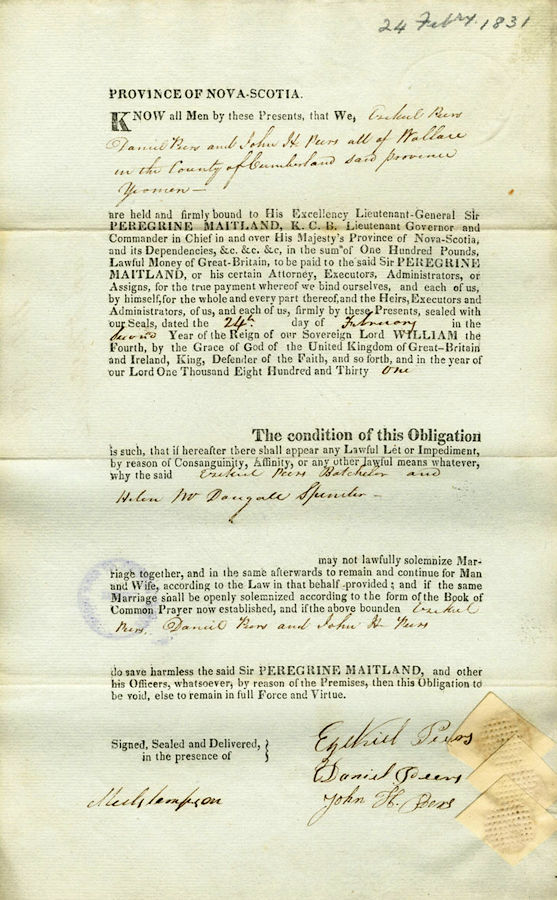 24 Febry. 1831
PROVINCE OF NOVA-SCOTIA.
KNOW all Men by these Presents, that We, Ezekiel Peers
Daniel Peers and John H Peers all of Wallace
in the County of Cumberland said province
Yeomen —
are held and firmly bound to His Excellency Lieutenant-General Sir
PEREGRINE MAITLAND, K. C. B. Lieutenant Governor and
Commander in Chief in and over His Majesty's Province of Nova-Scotia,
and its Dependencies, &c. &c. &c, in the sum of One Hundred Pounds,
Lawful Money of Great-Britain, to be paid to the said Sir PEREGRINE
MAITLAND, or his certain Attorney, Executors, Administrators, or
Assigns, for the true payment whereof we bind ourselves, and each of us,
by himself, for the whole and every part thereof, and the Heirs, Executors and
Administrators, of us, and each of us, firmly by these Presents, sealed with
our Seals, dated the 24th day of February in the
second Year of the Reign of our Sovereign Lord WILLIAM the
Fourth, by the Grace of God of the United Kingdom of Great-Britain
and Ireland, King, Defender of the Faith, and so forth, and in the year of
our Lord One Thousand Eight Hundred and Thirty one
The condition of this Obligation
is such, that if hereafter there shall appear any Lawful Let or Impediment,
by reason of Consanguinity, Affinity, or any other lawful means whatever,
why the said Ezekiel Peers Batchelor and
Helen Mc Dougall Spinster —
may not lawfully solemnize Mar-
riage together, and in the same afterwards to remain and continue for Man
and Wife, according to the Law in that behalf provided; and if the same
Marriage shall be openly solemnized according to the form of the Book of
Common Prayer now established, and if the above bounden Ezekiel
Peers, Daniel Peers and John H Peers
do save harmless the said Sir PEREGRINE MAITLAND, and other
his Officers, whatsoever, by reason of the Premises, then this Obligation to
be void, else to remain in full Force and Virtue.
Signed, Sealed and Delivered, }
in the presence of
Ezekiel Peers
Daniel Peers
John H. Peers